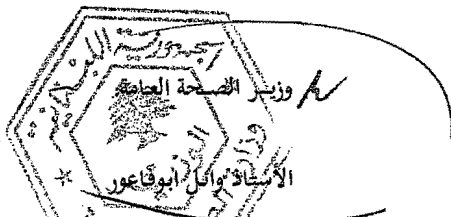 الجمهورية اللبنانية
وزير الصحة العامة
وزارة
الأستاذ وائل ابوفاعور